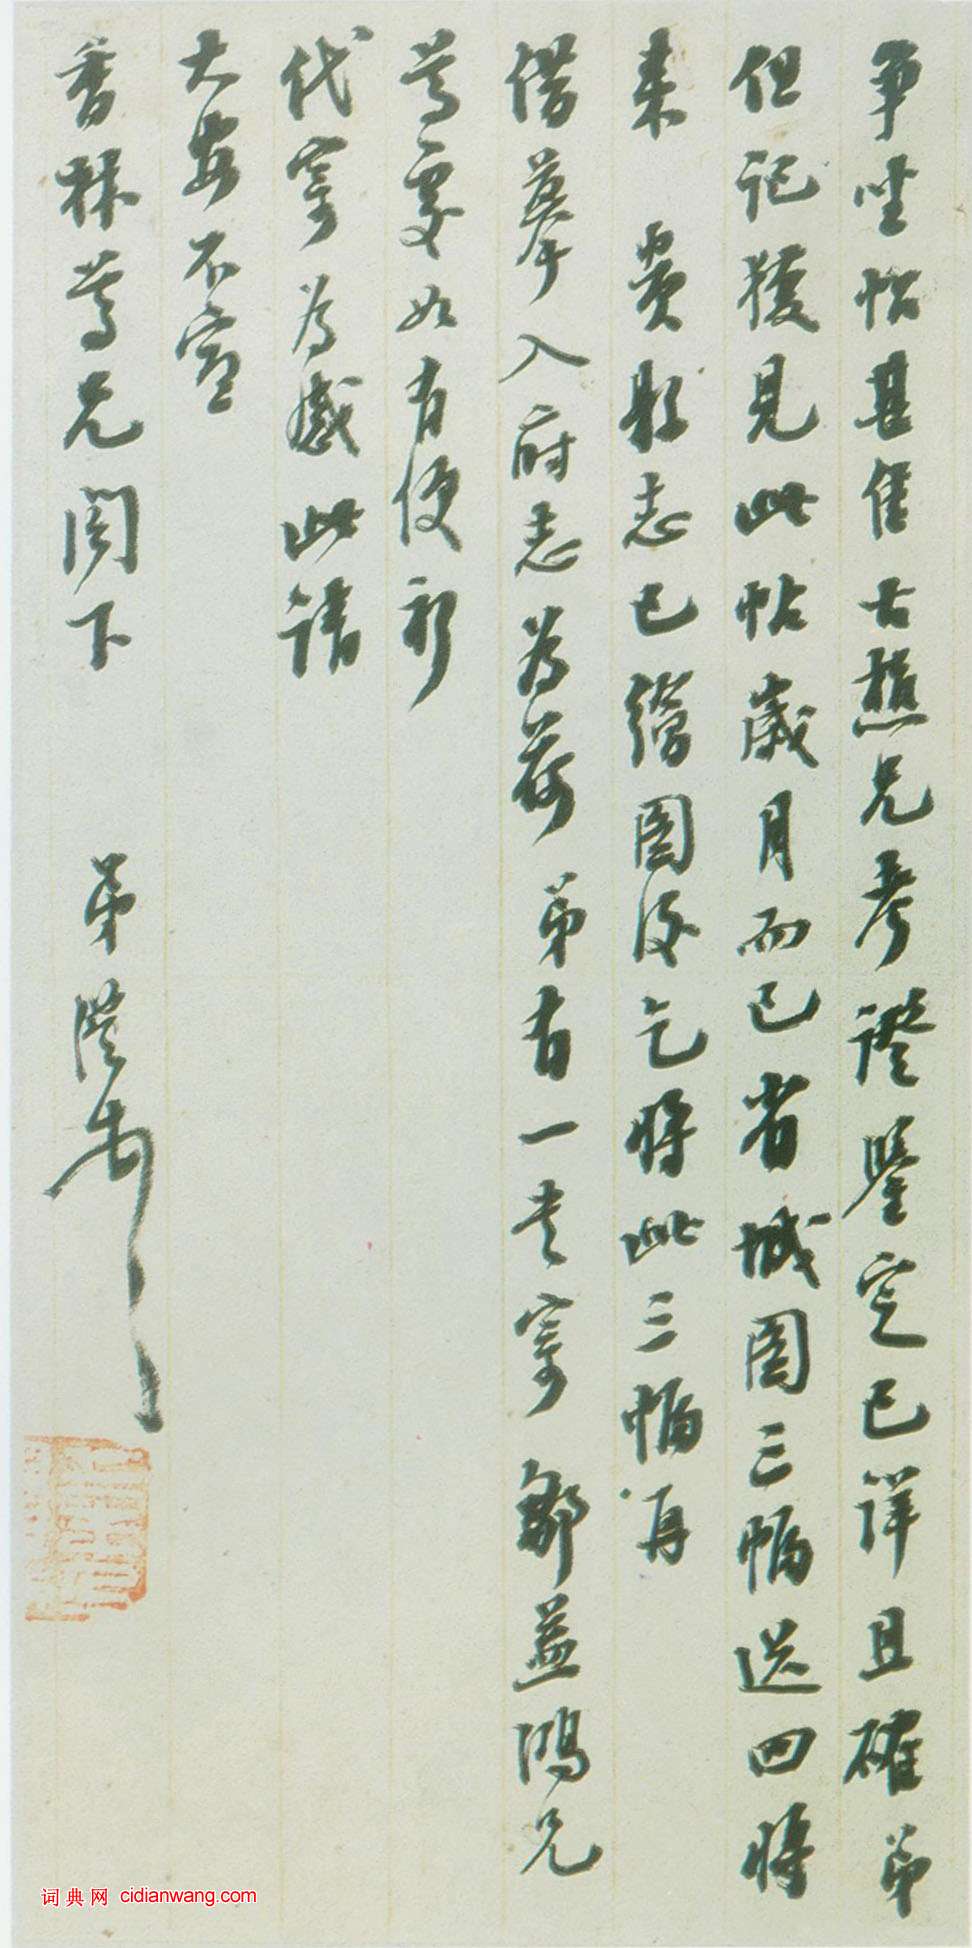 爭坐帖甚佳古樵兄考證鑒定已詳且確弟
但記獲見此帖歲月而已省城圖三幅送回將
來 貴縣志已繪圖後乞將此三幅再
借摹入府志為荷弟有一夫寄 鄒益鴻兄
尊處如有便祈
代寄為感此請
大安不宣
香林尊兄閣下 弟澧
词典网 cidianwang.com